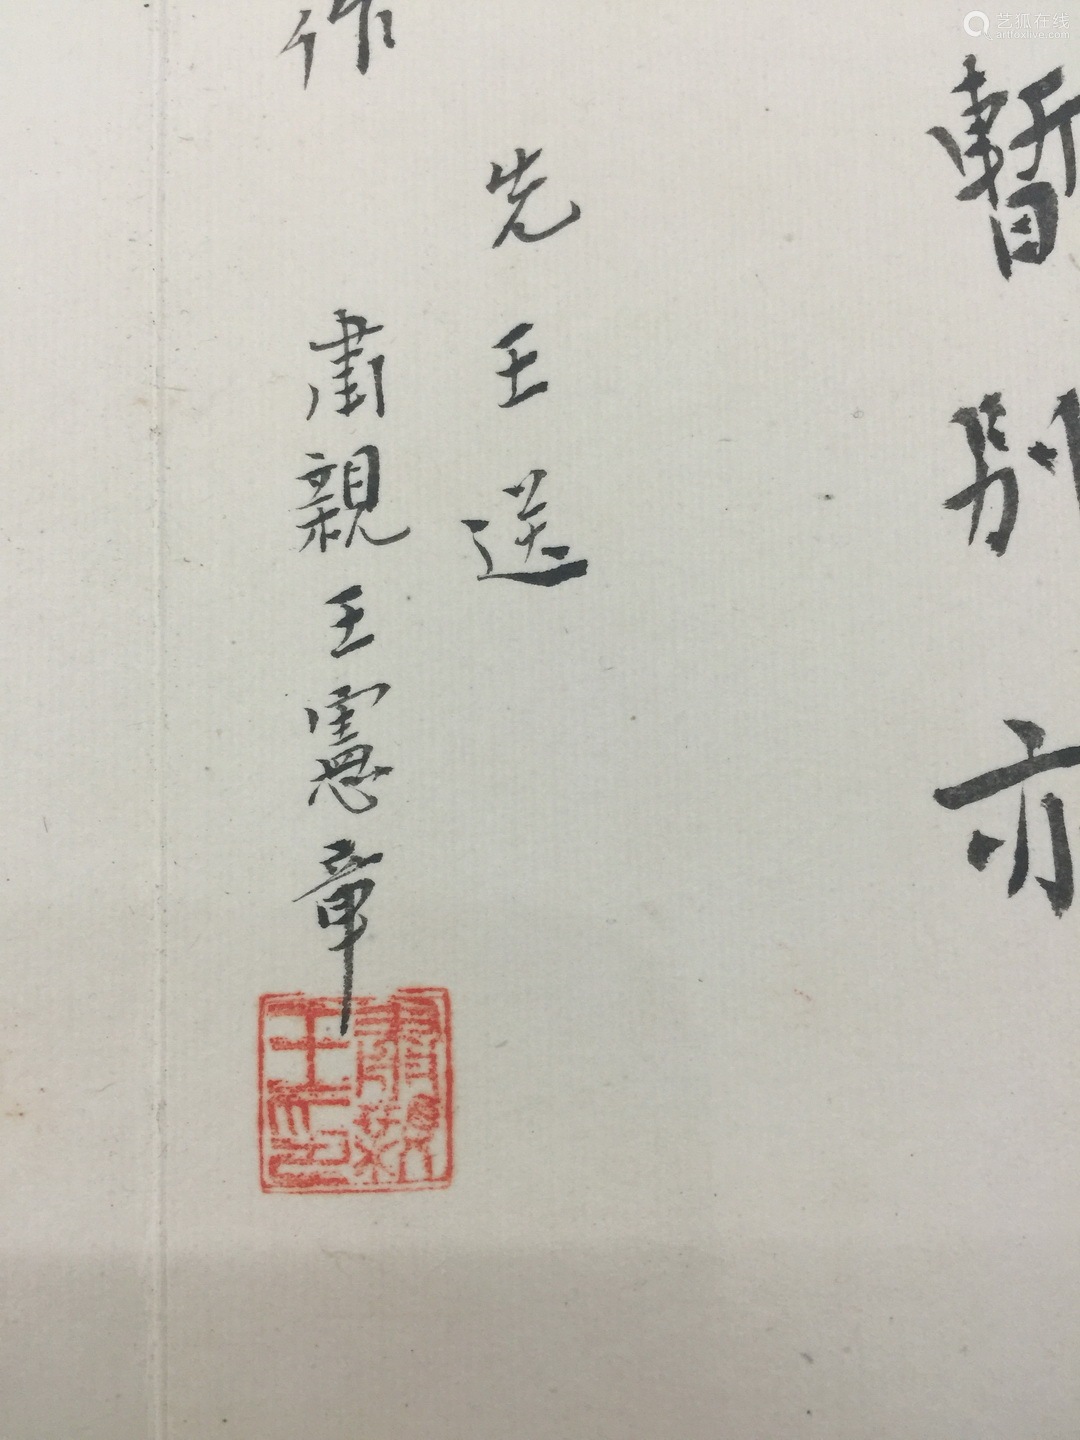 暫別亦
先王送
作
肅親王憲章
肅親王印
艺狐在线
artfoxlive.com